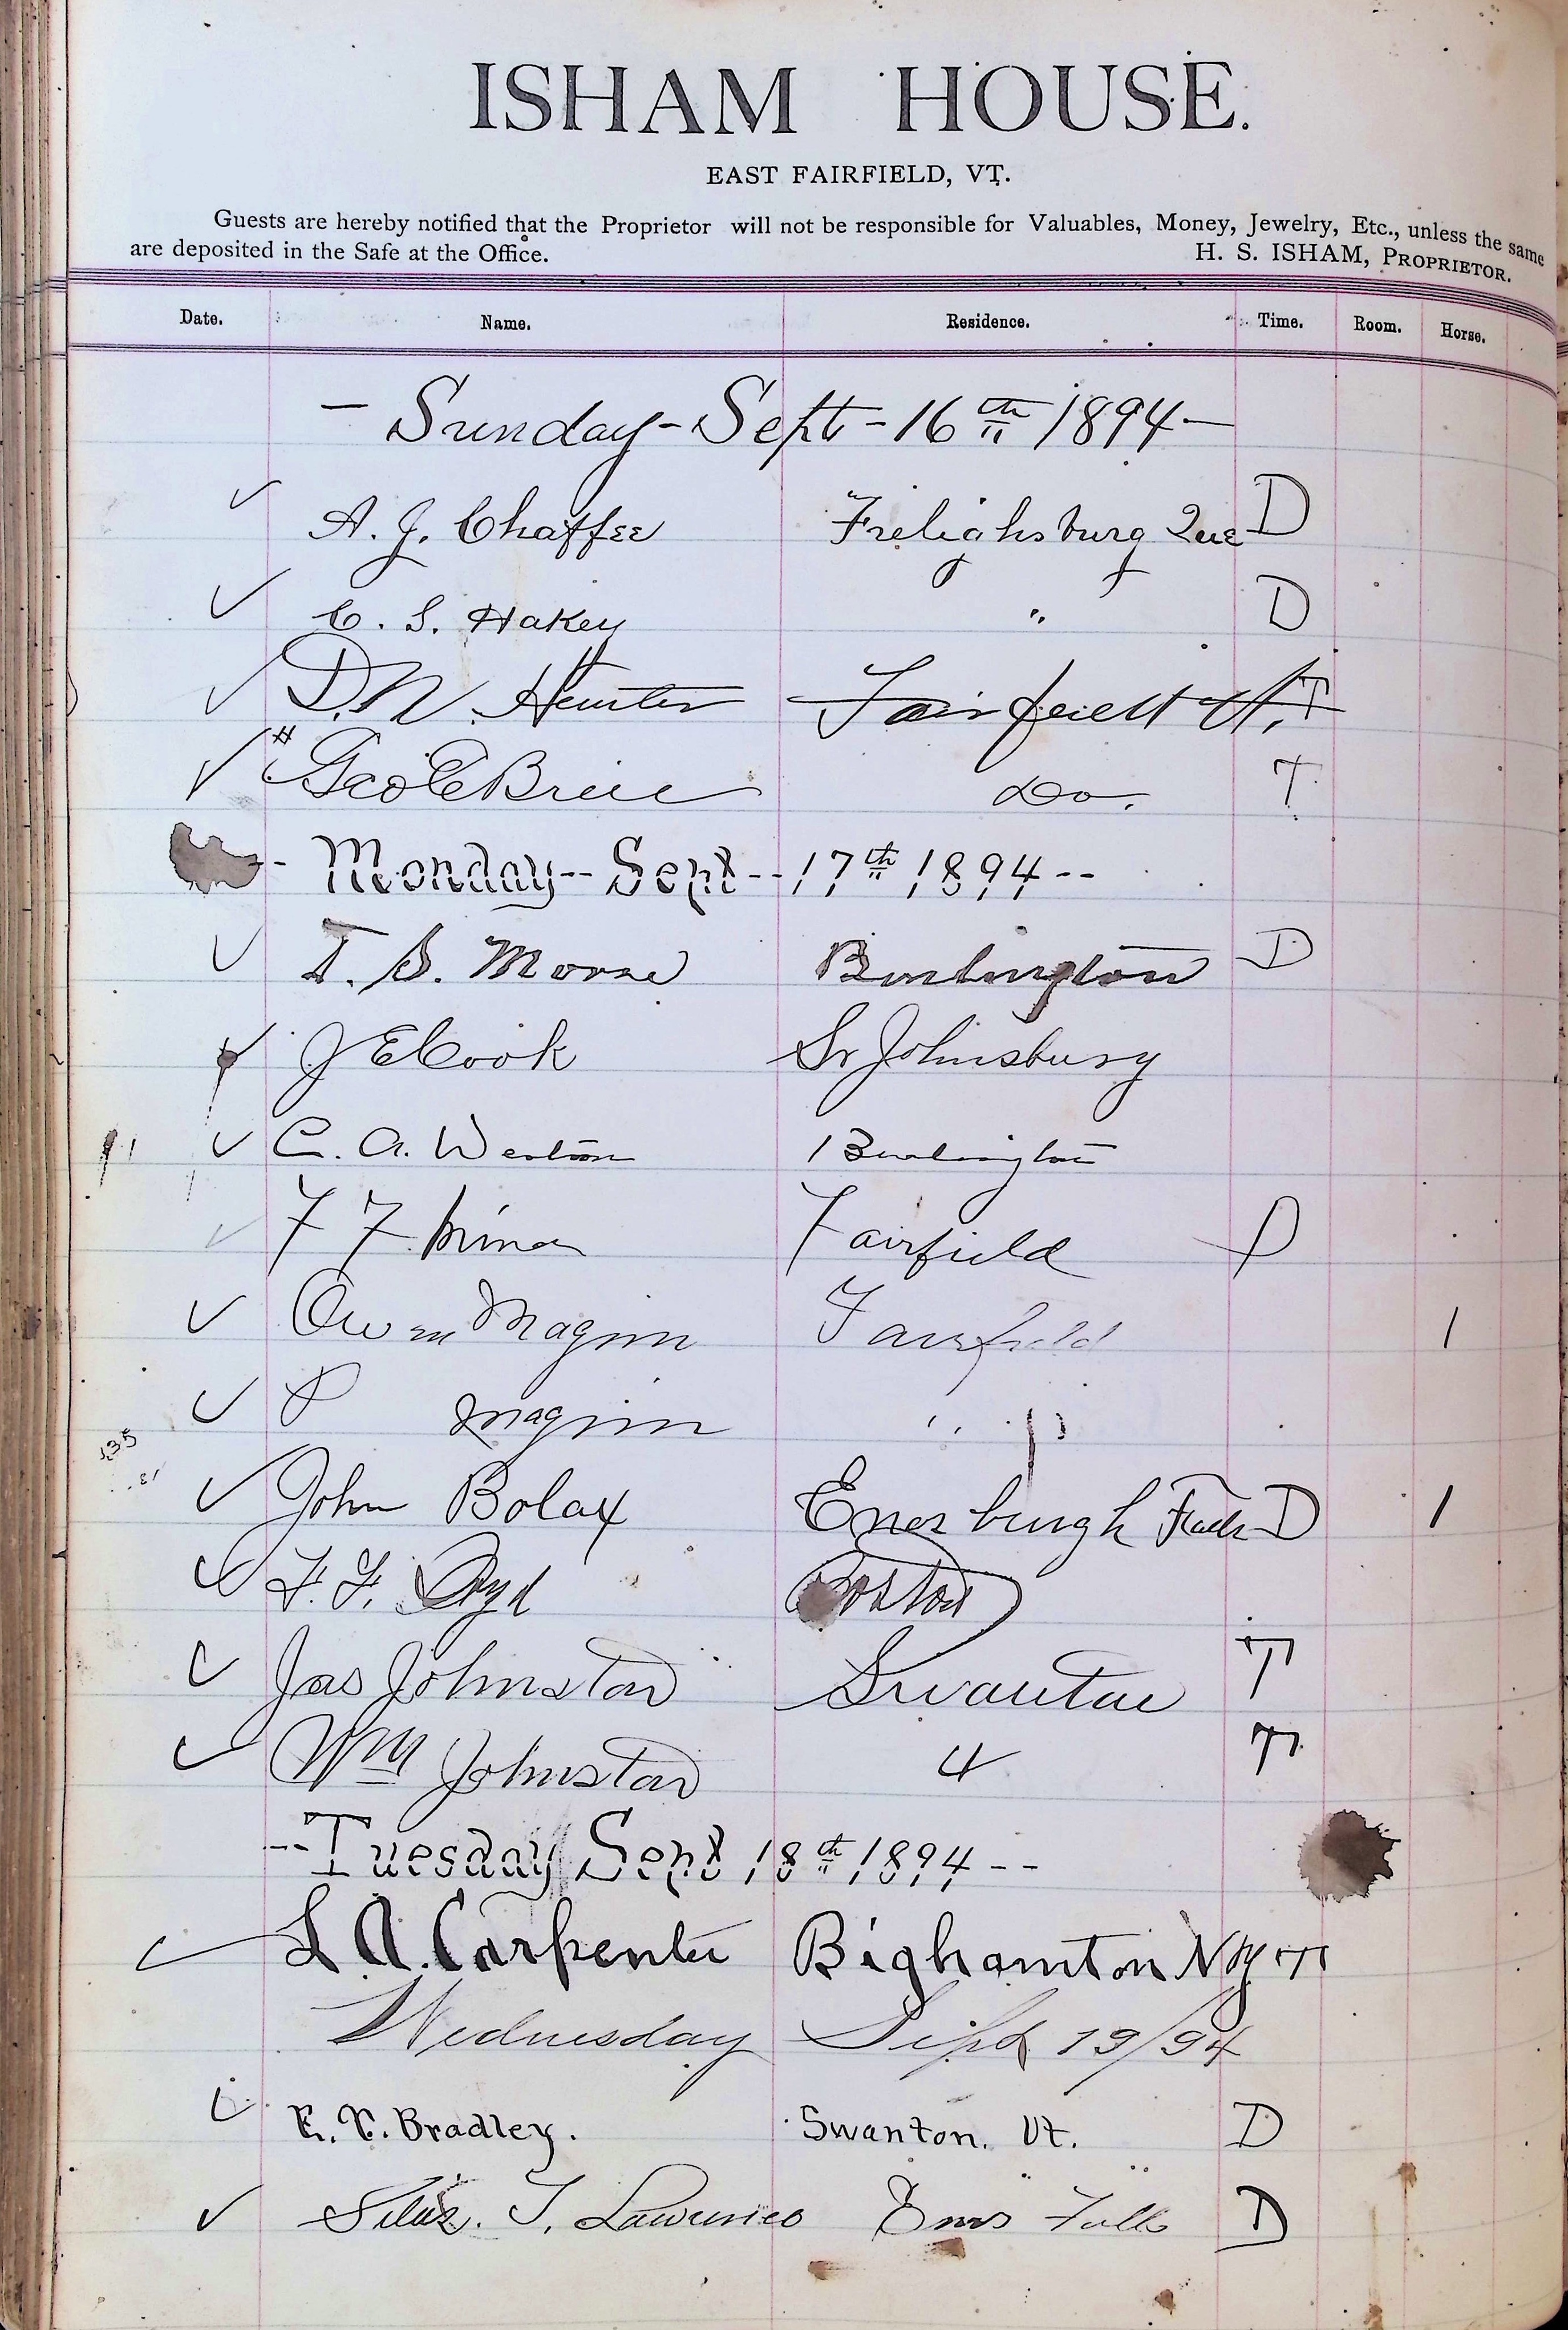 ISHAM HOUSE.
EAST FAIRFIELD, VT.
Guests are hereby notified that the Proprietor will not be responsible for Valuables, Money, Jewelry, Etc., unless the same
are deposited in the Safe at the Office. H. S. ISHAM, PROPRIETOR.
Date. Name. Residence. Time. Room. Horse.
- Sunday - Sept - 16th 1894 -
A. J. Chaffee Frelighsburg Que D
C. S. Hakey " D
D. N. Hunter Fairfield Vt. T
Geo C Brice Do. T
- Monday -- Sept -- 17th 1894 --
T. S. Morse Burlington D
J E Cook St Johnsbury
C. A. Weston Burlington
F F Fairfield D
Owen Maginn Fairfield 1
P Maginn " "
John Bolax Enosburgh Falls D 1
F. F. Boston
Jas Johnston Swanton T
Wm Johnston " T
-- Tuesday Sept 18th 1894 --
L A. Carpenter Bighamton N Y T
Wednesday Sept 19/94
E. C. Bradley. Swanton. Vt. D
Silas. T. Lawrence Enos Falls D